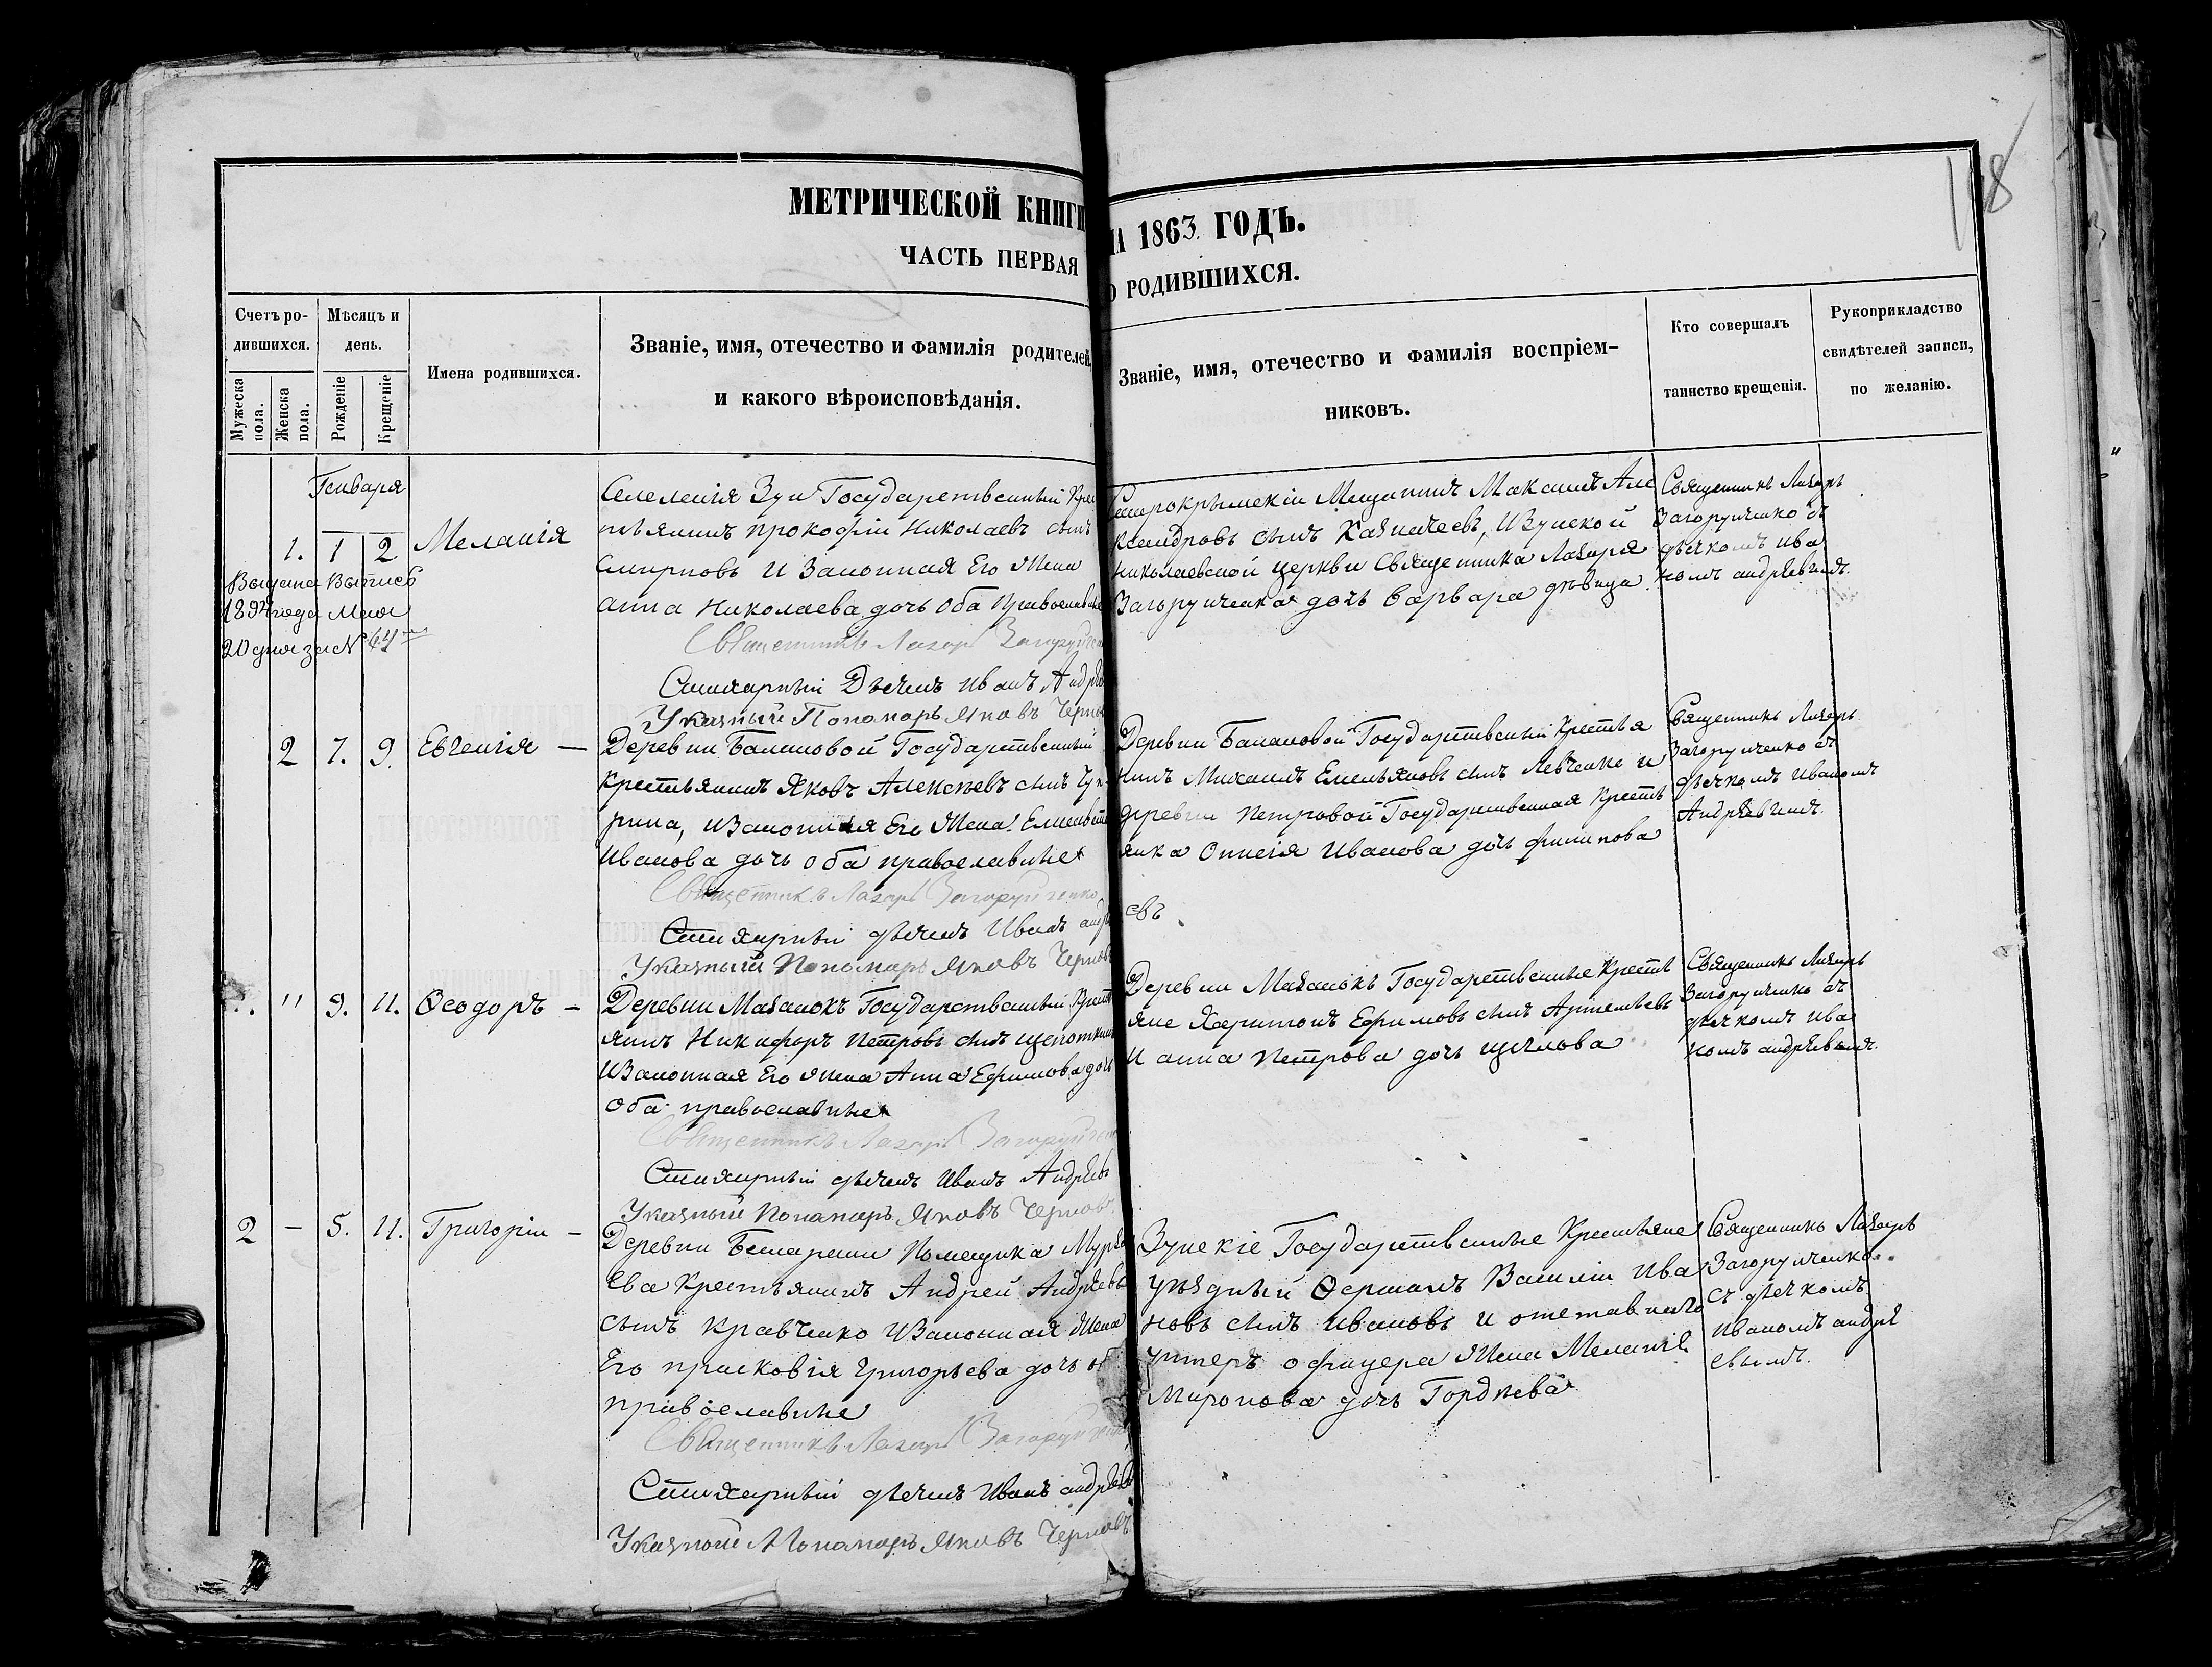 МЕТРИЧЕСКОЙ КНИГИ
НА 1863 ГОДЪ.
ЧАСТЬ ПЕРВАЯ
О РОДИВШИХСЯ.
118
Счетъ ро-
дившихся.
Мужеска
пола.
Женска
пола.
Мѣсяцъ и
день.
Рожденіе
Крещеніе
Имена родившихся.
Званіе, имя, отечество и фамилія родителей
и какого вѣроисповѣданія.
Званіе, имя, отечество и фамилія воспріем-
никовъ.
Кто совершалъ
таинство крещенія.
Рукоприкладство
свидѣтелей записи,
по желанію.
Генваря
1. 1 2 Меланія
Выдана Выпись
года Мая
20 дня за N
Селенія Зуи Государственный Кре
тьянинъ прокофій Николаевъ сынъ
Смирновъ И Законная Его Жена
анна Николаева дочь Оба Православные
Священникъ Лазарь Загоруйченко
Стихарный Дьячекъ Иванъ Андрѣ
Указный Пономарь Яковъ Черно
Старокрымскій Мещанинъ Максимъ Але
ксандровъ сынъ Казначеевъ, И Зуйской
Николаевской церкви Священника Лазаря
Загоруйченка дочь Варвара дѣвица
Священникъ Лазарь
Загоруйченко съ
дьячкомъ Ива
номъ андрѣевымъ.
2 7. 9. Евгенія —
Деревни Балановой Государственный
Крестьянинъ Яковъ Алексѣевъ сынъ Чу
рина, И Законная Его Жена Елисавета
Иванова дочь оба православные
Священникъ Лазарь Загоруйченко
Стихарный дьячекъ Иванъ андр
Указный Пономарь Яковъ Чернов
Деревни Балановой Государственный Крестья
нинъ Михаилъ Емельяновъ сынъ Левченко и
деревни Петровой Государственная Кресть
янка Онисія Иванова дочь филипова
евъ
Священникъ Лазарь
Загоруйченко съ
дьячкомъ Иваномъ
Андрѣевымъ.
" 9. 11. Ѳеодоръ —
Деревни Мазанокъ Государственный Крест
янинъ Никифоръ Петровъ сынъ щепоткинъ
И Законная Его жена Анна Ефимова дочь
Оба православные
Священникъ Лазарь Загоруйчен
Стихарный дьячекъ Иванъ Андрѣевъ
Указный Пономарь Яковъ Черновъ
Деревни Мазанокъ Государственные Кресть
яне Харитонъ Ефимовъ сынъ Артемьевъ
И анна Петрова дочь
Священникъ Лазарь
Загоруйченко съ
дьячкомъ Ива
номъ андрѣевымъ.
2 — 5. 11. Григорій —
Деревни Бешарани Помещика
ева Крестьянинъ Андрей Андрѣевъ
сынъ Кравченко И Законная Жена
Его прасковія Григорьева дочь об
православные
Священникъ Лазарь Загоруйченко
Стихарный дьячекъ Иванъ андрѣевъ
Указный Пономарь Яковъ Черновъ
Зуйскіе Государственные Крестьяне
Уѣздный Ѳершалъ Василій Ива
новъ сынъ Ивановъ и отставнаго
Унтеръ офицера Жена Меланія
Миронова дочь Гордѣева
Священникъ Лазарь
Загоруйченко
съ дьячкомъ
Иваномъ андрѣ
евымъ.